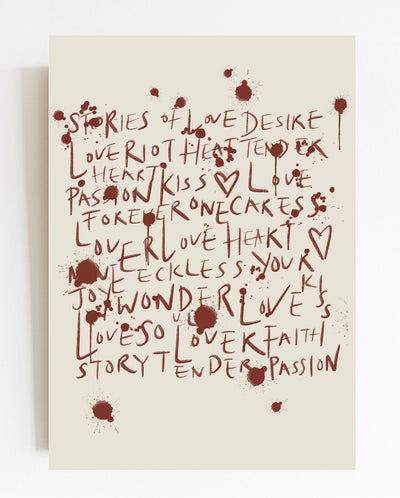 STORIES OF LOVE DESIRE
LOVE RIOT HEAT TENDER
HEART
PASSION KISS ♡ LOVE
FOREVER ONE CARESS
LOVER LOVE HEART ♡
RECKLESS YOUR
JOY WONDER LOVE KISS
LOVE SO LOVER FAITH
STORY TENDER PASSION